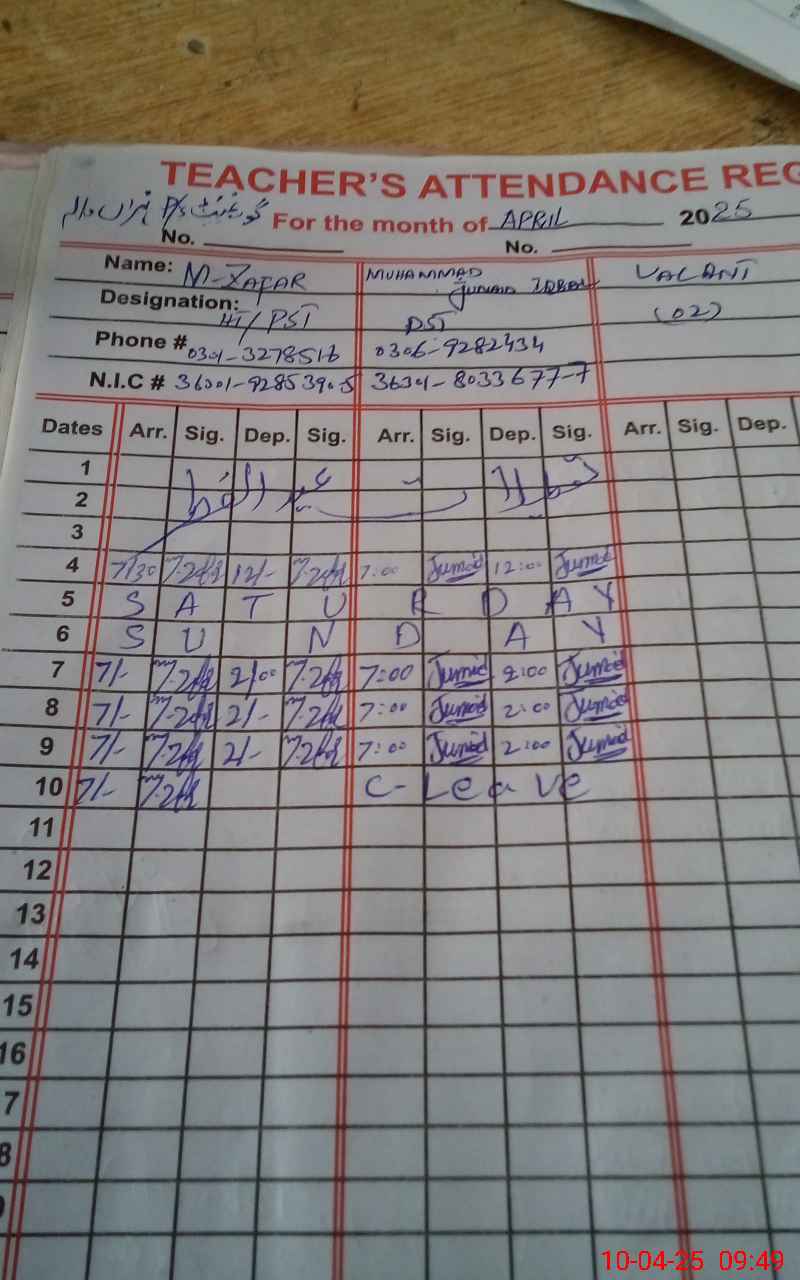 TEACHER'S ATTENDANCE REG
گورنمنٹ P/S For the month of APRIL 2025
No. No.
Name: M-ZAFAR MUHAMMAD Junaid IQBAL VACANT
Designation: HT/PST PST (02)
Phone # 0301-3278516 0306-9282434
N.I.C # 36301-8033677-7
Dates Arr. Sig. Dep. Sig. Arr. Sig. Dep. Sig. Arr. Sig. Dep.
1
2 عید الفطر
3
4 7/30 12/- 7:00 Junaid 12:00 Junaid
5 SATURDAY
6 SUNDAY
7 7/- 2/00 7:00 Junaid 2:00 Junaid
8 7/- 2/- 7:00 Junaid 2:00 Junaid
9 7/- 2/- 7:00 Junaid 2:00 Junaid
10 7/- C-Leave
11
12
13
14
15
16
7
8
10-04-25 09:49